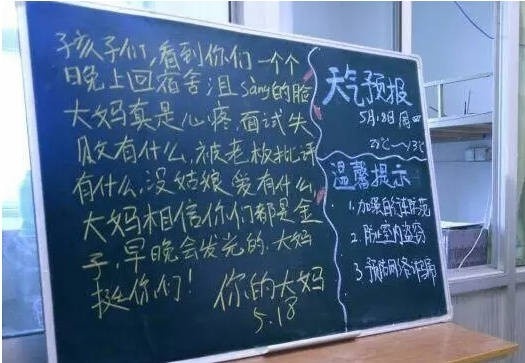 孩子们,看到你们一个个
晚上回宿舍沮sàng的脸
大妈真是心疼,面试失
败有什么,被老板批评
有什么,没姑娘爱有什么,
大妈相信你们都是金
子,早晚会发光的.大妈
挺你们!
你的大妈
5.18
天气预报
5月18日周四
28℃—13℃
温馨提示
1.加强自行车防范
2.防止室内盗窃
3.预防网络诈骗